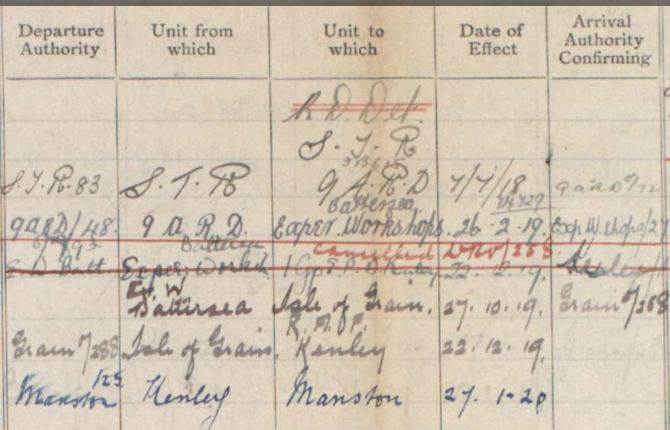 Departure Authority Unit from which Unit to which Date of Effect Arrival Authority Confirming
R. D. Det.
S. T. R
S.T.R. 83 S. T. R 9 A. R. D 7/7/18
Battersea
9ARD/48. 9 A. R. D. Exper. Workshops. 26. 2. 19. Exp W. Shops/27
Battersea cancelled DRO/258.
E. W. Batt Exper. Worksh. 1 Gp. Kenley 22. 2. 19. Kenley
E. W.
Battersea Isle of Grain. 27. 10. 19. Grain /288
R. A. F.
Grain /288 Isle of Grain. Kenley 22. 12. 19.
Manston /123 Kenley Manston 27. 1-20